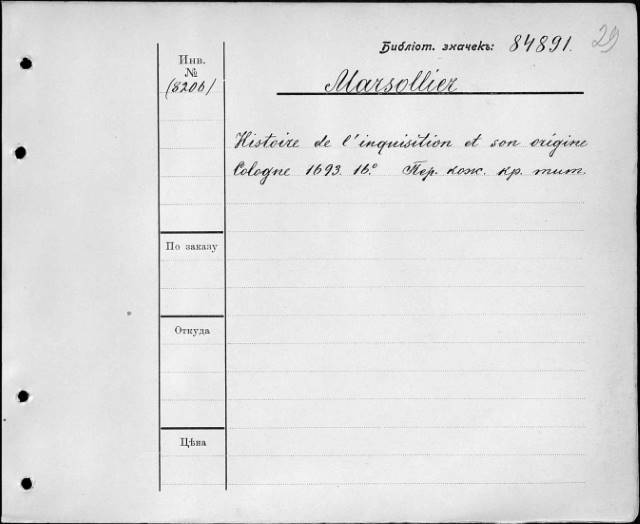 Библіот. значекъ: 84891. 29
Инв.
№
(8206)
Marsollier
Histoire de l'inquisition et son origine
Cologne 1693. 16° Пер. кож. кр. тит.
По заказу
Откуда
Цѣна